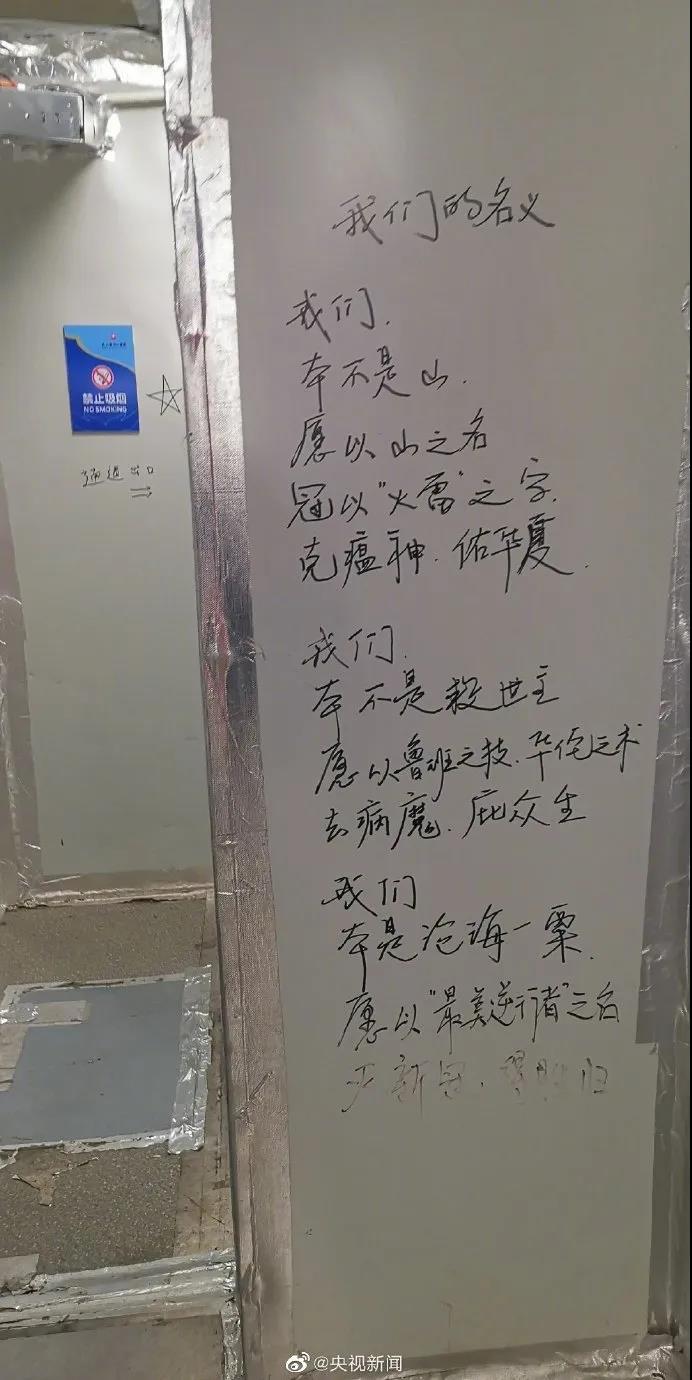 我们的名义
我们.
本不是山.
愿以山之名
冠以“火雷”之字.
克瘟神.佑华夏.
我们.
本不是救世主
愿以鲁班之技.华佗之术
去病魔.庇众生
我们
本是沧海一粟.
愿以“最美逆行者”之名
灭新冠.得胜归
禁止吸烟
NO SMOKING
通道出口
@央视新闻